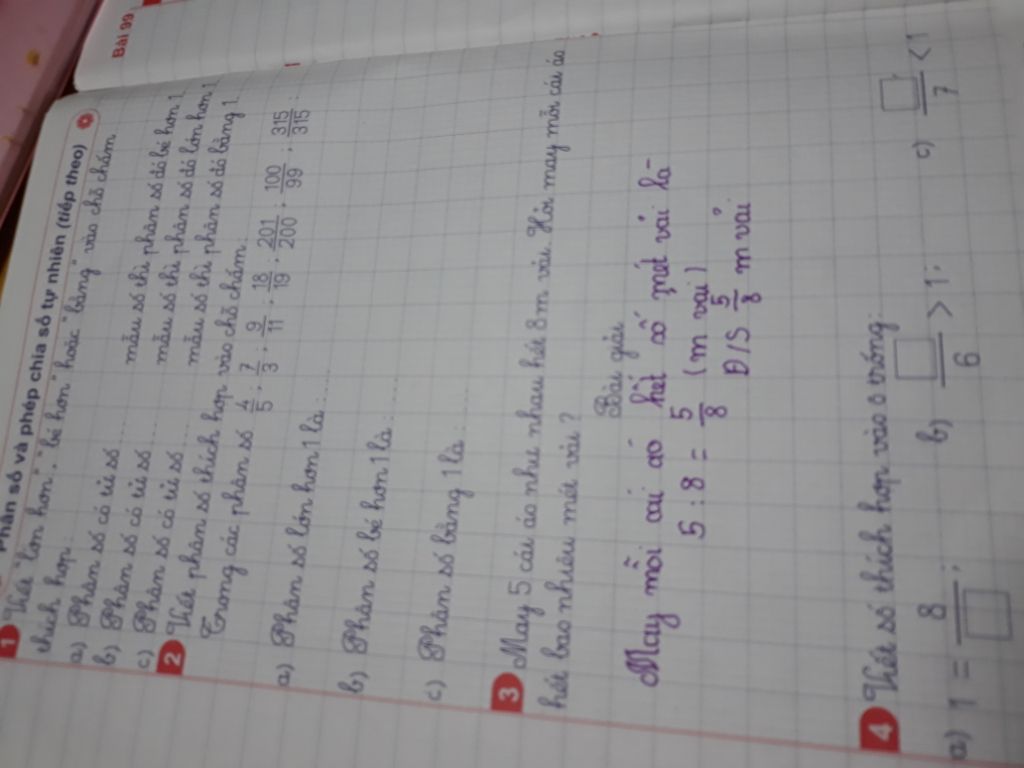 Bài 99
Phân số và phép chia số tự nhiên (tiếp theo)
1 Viết "lớn hơn", "bé hơn" hoặc "bằng" vào chỗ chấm
thích hợp:
a) Phân số có tử số ........ mẫu số thì phân số đó bé hơn 1
b) Phân số có tử số ........ mẫu số thì phân số đó lớn hơn 1
c) Phân số có tử số ........ mẫu số thì phân số đó bằng 1
2 Viết phân số thích hợp vào chỗ chấm:
Trong các phân số 4/5 ; 7/3 ; 9/11 ; 18/19 ; 201/200 ; 100/99 ; 315/315 :
a) Phân số lớn hơn 1 là: ........
b) Phân số bé hơn 1 là: ........
c) Phân số bằng 1 là: ........
3 May 5 cái áo như nhau hết 8m vải. Hỏi may mỗi cái áo
hết bao nhiêu mét vải ?
Bài giải
May mỗi cái áo hết số mét vải là
5 : 8 = 5/8 (m vải)
Đ/S 5/8 m vải
4 Viết số thích hợp vào ô trống:
a) 1 = 8/□ ; b) □/6 > 1 ; c) □/7 < 1